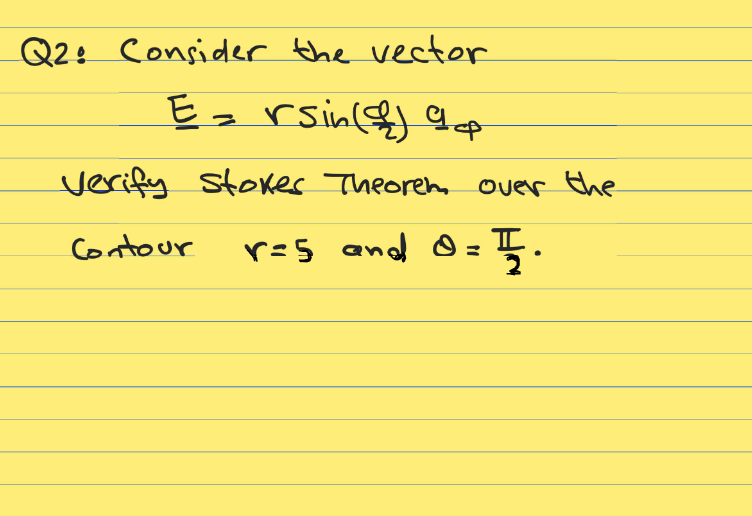 Q2: Consider the vector
E = r sin(φ/2) a_φ
Verify Stokes Theorem over the
contour r=5 and θ = π/2.